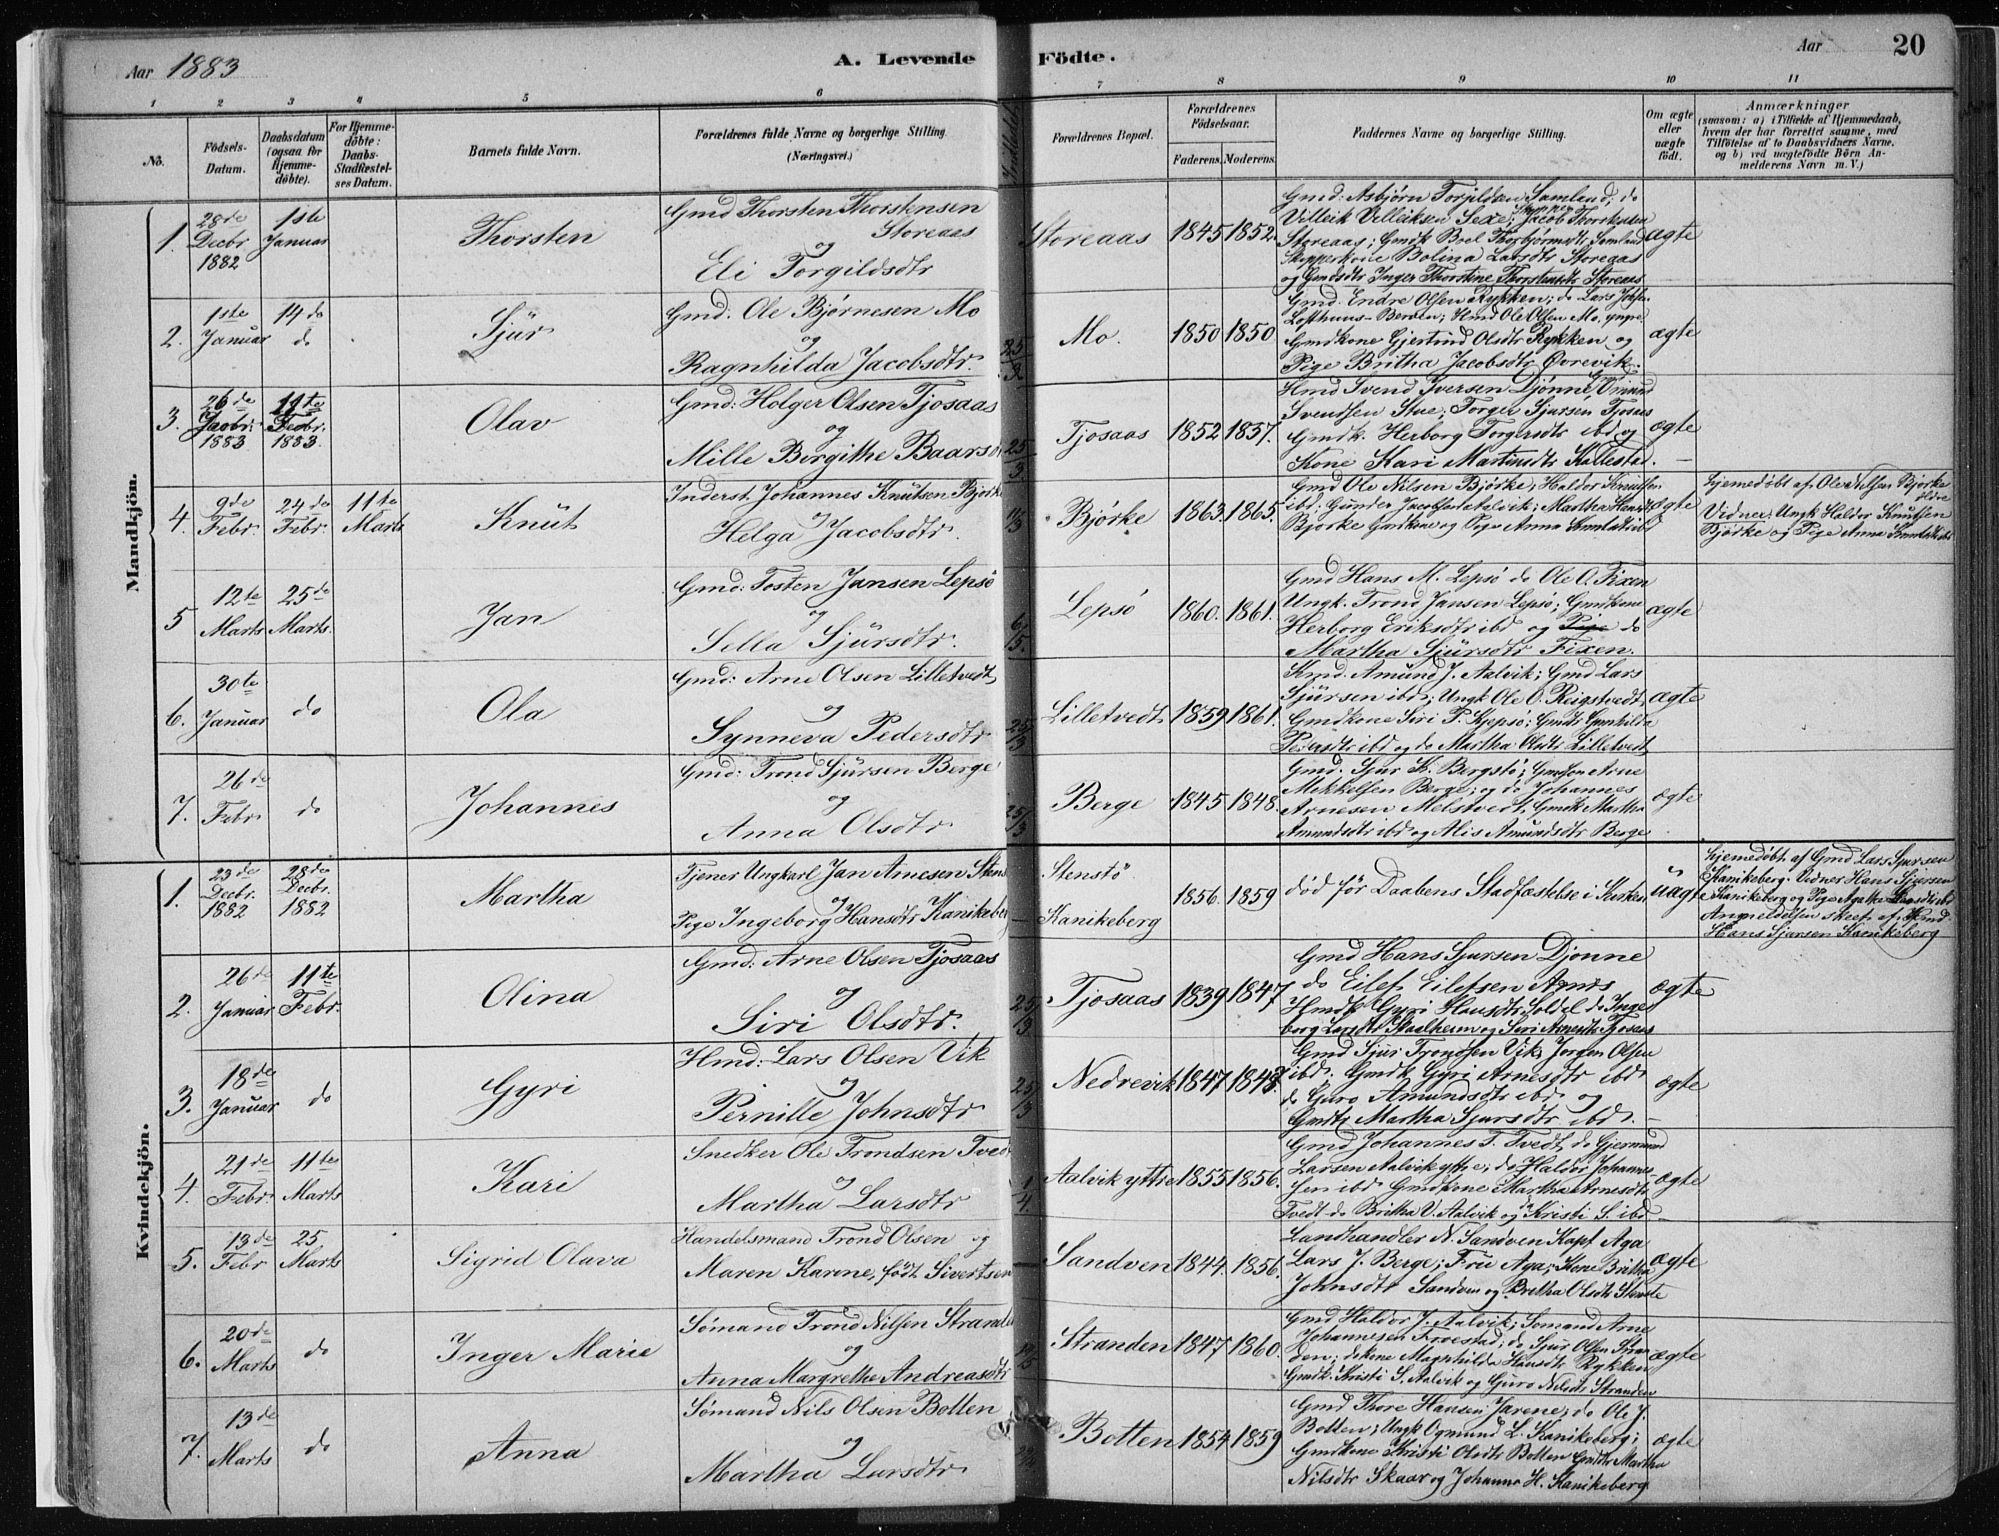 Aar 1883
A. Levende Fødte.
Aar
20
1 2 3 4 5 6 7 8 9 10 11
No.
Fødsels-Datum.
Daabsdatum (ogsaa for Hjemme-døbte).
For Hjemme-døbte: Daabs-Stadfæstel-ses Datum.
Barnets fulde Navn.
Forældrenes fulde Navne og borgerlige Stilling.
(Næringsvei.)
Forældrenes Bopæl.
Forældrenes Fødselsaar.
Faderens. Moderens.
Faddernes Navne og borgerlige Stilling.
Om ægte eller uægte født.
Anmærkninger
(saasom: a) i Tilfælde af Hjemmedaab, hvem der har forrettet samme, med Tilføielse af to Daabsvidners Navne, og b) ved uægtefødte Børn Anmelderens Navn m. V.)
Mandkjön.
1. 28de Decbr. 1882
1ste Januar
Thorsten
Gmd Thorsten Thorstensen Storeaas
og
Eli Torgildsdtr
Storeaas
1845 1852.
Gmd: Asbjørn Torgildsen Samland; do
Villeik Villeiksen Sexe; Jacob Thorstensen
Storeaas; Gmdk Brel Thorbjørnsdtr Samland
Skipperkone Bolina Larsdtr Storeaas
og Gmdsdtr Inger Thorstine Thorstensdtr Storeaas
ægte
2. 1ste Januar
14 do do
Sjür
Gmd. Ole Bjørnesen Mo
og
Ragnhilda Jacobsdtr.
25/3
Mo.
1850 1850
Gmd. Endre Olsen Rykken; do Lars Johs.
Lofthuus-Berven; Hmd Ole Olsen Mo, yngre
Gmdkone Gjertrud Olsdtr Rykken og
Pige Britha Jacobsdtr Øvrevik.
ægte
3. 26de 1883
11te Febr. 1883.
Olav
Gmd: Holger Olsen Tjosaas
og
Mille Bergithe Baars
25/3
Tjosaas
1852 1857.
Hmd Svend Iversen Djønne,
Svendsen Stue; Torger Sjursen Tjosaas
Gmdk. Herborg Torgersdtr ibd og
Kone Kari Martinsdtr Kollestad.
ægte
4. 9de Febr.
24de Febr.
11te Marts
Knüt
Inderst. Johannes Knütsen Bjørke
og
Helga Jacobsdtr.
Bjørke
1863. 1865.
Gmd Ole Nilsen Bjørke; Haldor Knutsen
ibd. Gunder Jacobsen Aalvik; Martha
Bjørke Gmdkone og Pige Anna Knutsdtr ibd
ægte
Hjemedøbt af Ole Nilsen Bjørke
ældre
Vidner: Ungk Haldor Knutsen
Bjørke og Pige Anna Knutsdtr ibd
5 12te Marts
25de Marts.
Jan
Gmd: Tosten Jansen Lepsö
og
Sella Sjürsdtr.
6/5.
Lepsö
1860. 1861.
Gmd Hans M. Lepsö do Ole O. Fixen
Ungk. Trond Jansen Lepsö; Gmdkone
Herborg Eriksdtr ibd og Pige do
Martha Sjürsdtr Fixen.
ægte
6. 30te Januar
do
Ola
Gmd: Arne Olsen Lilletvedt
og
Synneva Pedersdtr
25/3
Lilletvedt
1859 1861.
Kmd. Amund J. Aalvik; Gmd Lars
Sjürsen ibd; Ungk Ole O. Reigstvedt
Gmdkone Siri P. Kjepsö; Gmdtr Gunhilda
Pedersdtr ibd og do Martha Olsdtr Lilletvedt
ægte
7. 26de Febr
do
Johannes
Gmd: Trond Sjürsen Berge
og
Anna Olsdtr
25/3
Berge
1845 1848.
Gmd. Sjur K. Bergstö; Gmdson Arne
Mikkelsen Berge; og do Johannes
Arnesen Melstvedt, Gmdk Martha
Amundsdtr ibd og Alis Amundsdtr Berge
ægte
Kvindekjön.
1. 23de Decbr. 1882
28de Decbr. 1882
Martha
Tjener Ungkarl Jan Arnesen Stens
og
Pige Ingeborg Hansdtr Kanikeberg
Stenstö
Kanikeberg
1856. 1859
død før Daabens Stadfæstelse i Kirken
üægte
Hjemedøbt af Gmd Lars Sjursen
Kanikeberg. Vidner Hans Sjursen
Kanikeberg og Pige Agatha
Anmeldelsen skeet af Hmd.
Hans Sjursen Kanikeberg
2. 26de Januar
11te Febr.
Olina
Gmd: Arne Olsen Tjosaas
og
Siri Olsdtr.
25/3
Tjosaas
1839 1847
Gmd Hans Sjursen Djønne
do Eilef Eilefsen
Hmdk Gyri Hansdtr do Inge
borg Larsdtr Staalheim og Siri Arnesdtr Tjosaas
ægte
3. 18de Januar
do
Gyri
Hmd: Lars Olsen Vik
og
Pernille Johnsdtr
25/3
Nedrevik
1847 1848
Gmd Sjur Trondsen Vik; Jorgen Olsen
ibd. Gmdk Gyri Arnesdtr ibd
do Guro Amundsdtr ibd og
Gmdtr Martha Sjursdtr ibd.
ægte
4. 21de Febr
11te Marts
Kari
Snedker Ole Trondsen Tvedt
og
Martha Larsdtr
1/4.
Aalvik yttre
1855 1856.
Gmd Johannes T. Tvedt, do Gjermund
Larsen Aalvik yttre; do Haldor Johannes
sen ibd Gmdkone Martha Arnesdtr
Tvedt do Britha V. Aalvik og Kristi S. ibd
ægte
5. 13de Febr
25 Marts
Sigrid Olava
Handelsmand Trond Olsen og
Maren Karene, født Sivertsen
Sandven
1844. 1856.
Landhandler N. Sandven Kapt Aga
Lars J. Berge; Frü Aga; Kone Britha
Johnsdtr Sandven og Britha Olsdtr
ægte
6. 20de Marts
do
Inger Marie
Sømand Trond Nilsen Stranden
og
Anna Margrethe Andreasdtr
Stranden
1847 1860.
Gmd Haldor J. Aalvik; Sømand Arne
Johannesen; do Sjur Olsen Stran
den; Magnhilda Hansdtr Rykken
Gmdk. Kristi S. Aalvik og Guro Nilsdtr Stranden
ægte
7. 13de Marts
do
Anna
Sømand Nils Olsen Botten
og
Martha Larsdtr
Botten
1854 1859
Gmd Thore Hansen Jarene; do Ole J.
Botten; Ungk Ogmund L. Kanikeberg;
Gmdkone Kristi Olsdtr Botten Gmdtr Martha
Nilsdtr Skaar og Johanna H. Kanikeberg
ægte